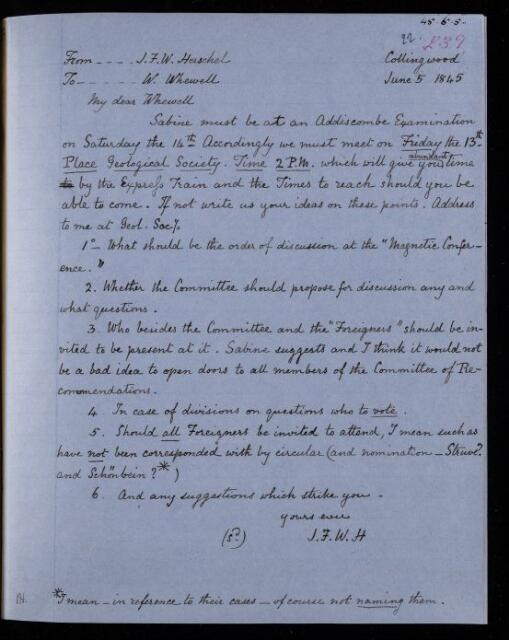 45-6-5-
22. 239
From - - - - J.F.W. Herschel Collingwood
To - - - - - W. Whewell June 5 1845
My dear Whewell
Sabine must be at an Addiscombe Examination
on Saturday the 14th Accordingly we must meet on Friday the 13th-
Place Geological Society. Time 2 P.M. which will give you abundant time
to by the Express Train and the Times to reach should you be
able to come. If not write us your ideas on these points. Address
to me at Geol. Socy.
1o- What should be the order of discussion at the "Magnetic Confer-
ence."
2. Whether the Committee should propose for discussion any and
what questions.
3. Who besides the Committee and the "Foreigners" should be in-
vited to be present at it. Sabine suggests and I think it would not
be a bad idea to open doors to all members of the Committee of Re-
commendations.
4 In case of divisions on questions who to vote.
5. Should all Foreigners be invited to attend, I mean such as
have not been corresponded with by circular (and nomination - Struve?
and Schönbein?*)
6. And any suggestions which strike you.
yours ever
J.F.W.H
*I mean - in reference to their cases - of course not naming them.